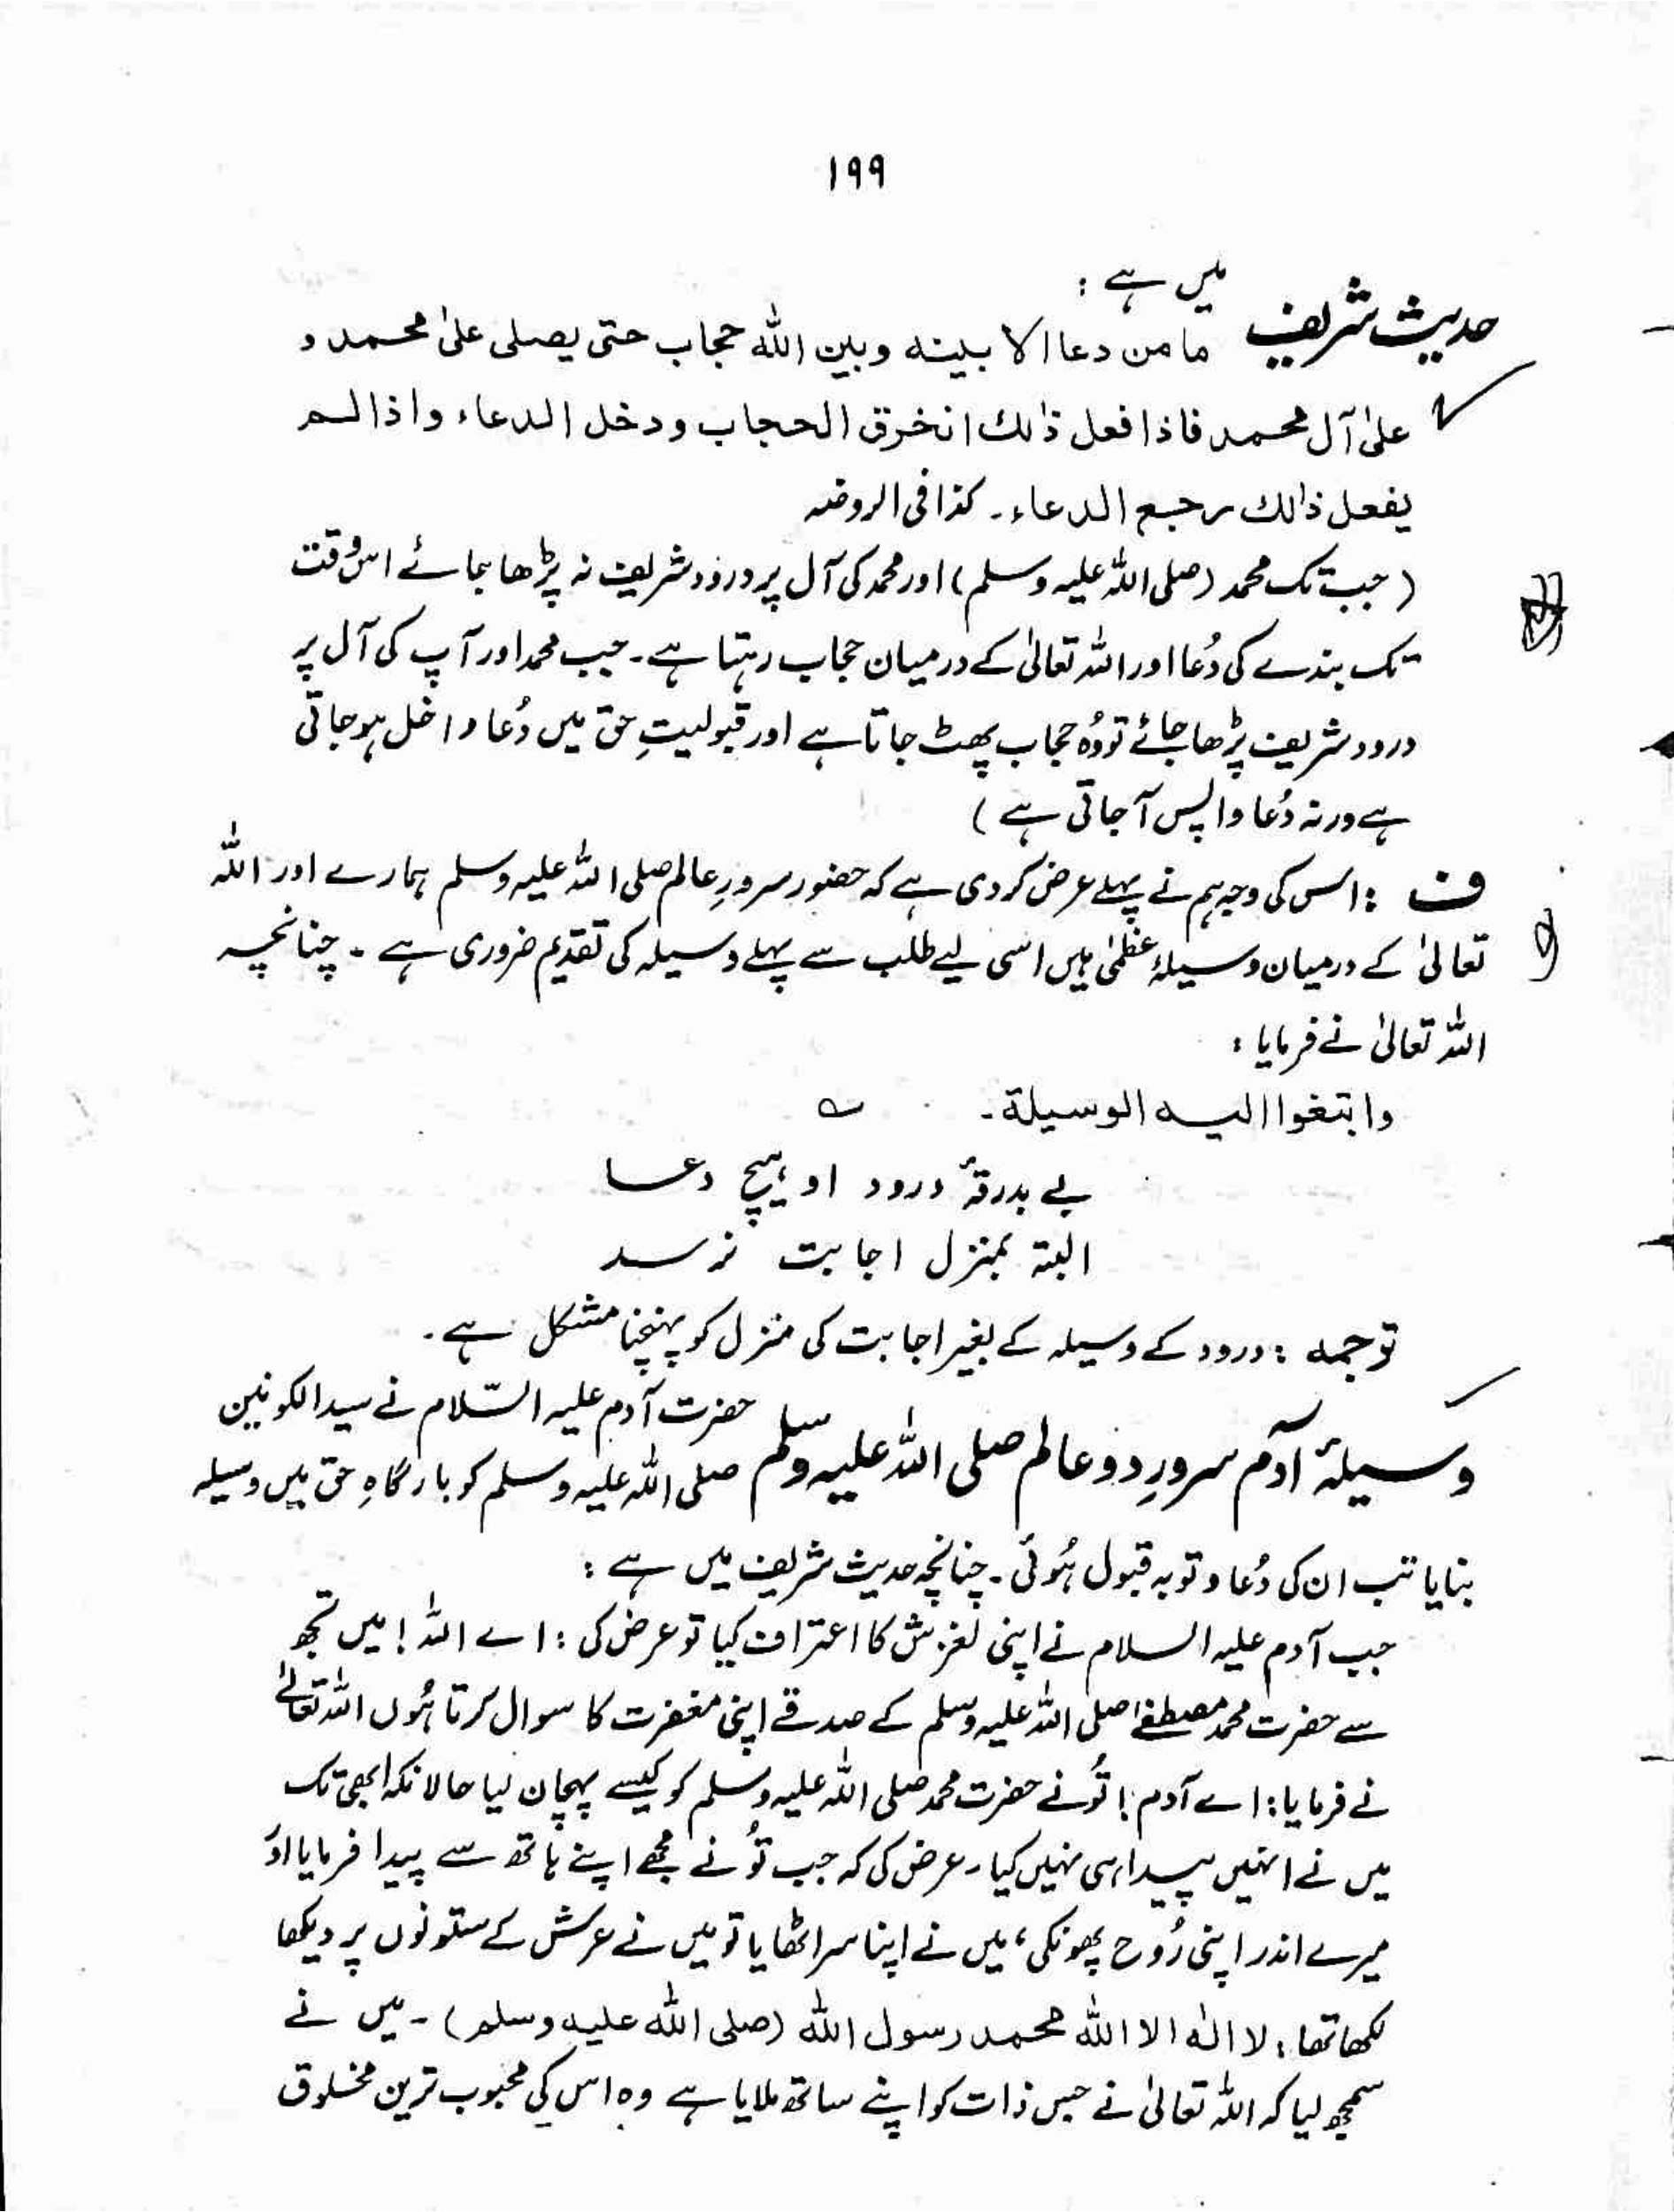 ۱۹۹
حدیث شریف میں ہے :
ما من دعا الا بینہ و بین اللہ حجاب حتی یصلی علیٰ محمد و
علیٰ آل محمد فاذا فعل ذٰلک انخرق الحجاب و دخل الدعاء واذا لم
یفعل ذٰلک رجع الدعاء۔ کذا فی الروضہ
(جب تک محمد (صلی اللہ علیہ وسلم) اور محمد کی آل پر درود شریف نہ پڑھا جائے اس وقت
تک بندے کی دُعا اور اللہ تعالیٰ کے درمیان حجاب رہتا ہے۔ جب محمد اور آپ کی آل پر
درود شریف پڑھا جائے تو وُہ حجاب پھٹ جاتا ہے اور قبولیتِ حق میں دُعا داخل ہو جاتی
ہے ورنہ دُعا واپس آ جاتی ہے)
ف : اس کی وجہ ہم نے پہلے عرض کر دی ہے کہ حضور سرورِ عالم صلی اللہ علیہ وسلم ہمارے اور اللہ
تعالیٰ کے درمیان وسیلۂ عظمٰی ہیں اسی لیے طلب سے پہلے وسیلہ کی تقدیم ضروری ہے ۔ چنانچہ
اللہ تعالیٰ نے فرمایا :
وابتغوا الیہ الوسیلة۔ ؎
بے بدرقۂ درود او ہیچ دعا
البتہ بمنزل اجابت نرسد
ترجمہ : درود کے وسیلہ کے بغیر اجابت کی منزل کو پہنچنا مشکل ہے ۔
وسیلۂ آدم سرورِ دو عالم صلی اللہ علیہ وسلم حضرت آدم علیہ السّلام نے سید الکونین
صلی اللہ علیہ وسلم کو بارگاہِ حق میں وسیلہ
بنایا تب ان کی دُعا و توبہ قبول ہُوئی ۔ چنانچہ حدیث شریف میں ہے :
جب آدم علیہ السلام نے اپنی لغزش کا اعتراف کیا تو عرض کی : اے اللہ ! میں تجھ
سے حضرت محمد مصطفےٰ صلی اللہ علیہ وسلم کے صدقے اپنی مغفرت کا سوال کرتا ہُوں اللہ تعالےٰ
نے فرمایا : اے آدم ! تُو نے حضرت محمد صلی اللہ علیہ وسلم کو کیسے پہچان لیا حالانکہ ابھی تک
میں نے انہیں پیدا ہی نہیں کیا ۔ عرض کی کہ جب تُو نے مجھے اپنے ہاتھ سے پیدا فرمایا اور
میرے اندر اپنی رُوح پھونکی ، میں نے اپنا سر اٹھایا تو میں نے عرش کے ستونوں پر دیکھا
لکھا تھا : لا الٰہ الا اللہ محمد رسول اللہ (صلی اللہ علیہ وسلم) ۔ میں نے
سمجھ لیا کہ اللہ تعالیٰ نے جس ذات کو اپنے ساتھ ملایا ہے وہ اس کی محبوب ترین مخلوق